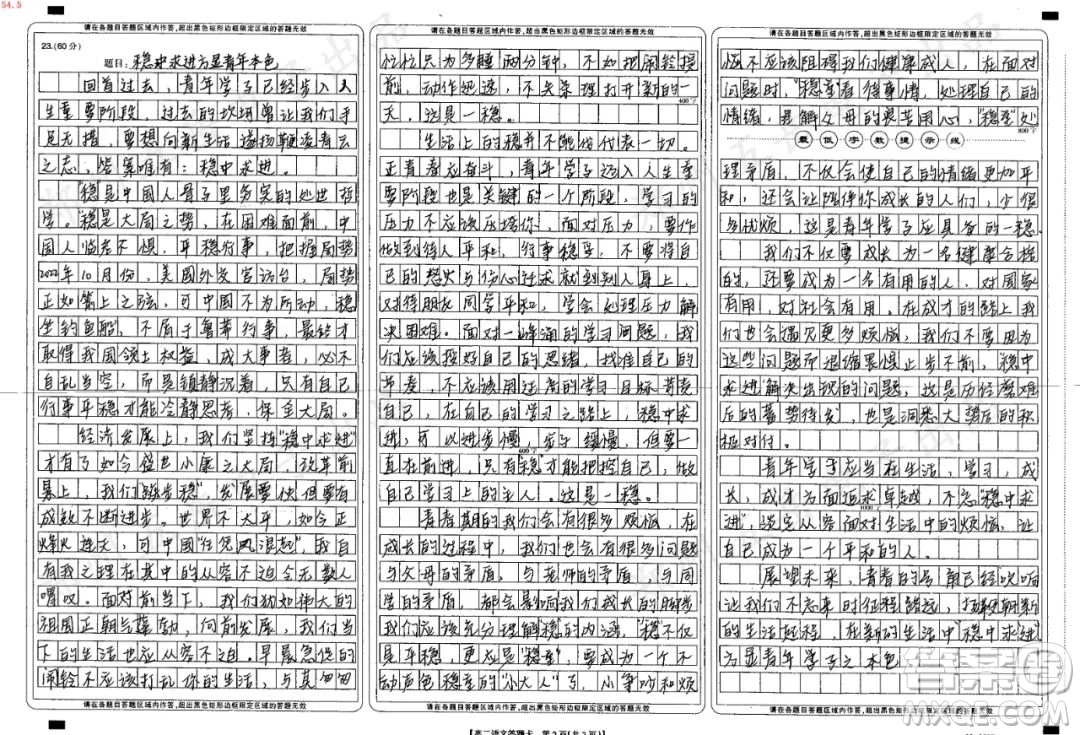 54.5
请在各题目答题区域内作答,超出黑色矩形边框限定区域的答题无效
23.(60分)
题目:稳中求进方显青年本色
回首过去,青年学子已经步入人
生重要阶段,过去的坎坷曾让我们手
足无措,要想向新生活遥扬鞭凌青云
之志,答案唯有:稳中求进。
"稳"是中国人骨子里务实的处世哲
学。"稳是大局之势,在困难面前,中
国人临危不惧,平稳行事,把握局势
2022年10月份,美国外交官访台,局势
正如箭上之弦,可中国不为所动,稳
坐钓鱼船,不屑于鲁莽行事,最终才
取得我国领土权益,成大事者,必不
自乱当空,而是镇静沉着,只有自己
行事平稳才能冷静思考,保全大局。
经济发展上,我们坚持"稳中求进"
才有了如今盛世小康之大局,改革前
景上,我们"稳步稳",发展要快但要有
成效不断进步。世界不太平,如今正
烽火连天,可中国"任凭风浪起",我们
有我之理在其中的从容不迫令无数人
喟叹。面对前当下,我们犹如伟大的
祖国正朝与蓬勃,向前发展,我们当
下的生活也应从容不迫。早晨急促的
闹铃不应该打乱你的生活,与其匆匆
请在各题目答题区域内作答,超出黑色矩形边框限定区域的答题无效
请在各题目答题区域内作答,超出黑色矩形边框限定区域的答题无效
忙忙只为多睡两分钟,不如把闹铃提
前,动作迅速,不失条理打开新的一
400字
天,这是一稳。
生活上的稳并不能代表一切。
正青春应奋斗,青年学子迈入人生重
要阶段也是关键的一个阶段,学习的
压力不应该压垮你,面对压力,要作
做到待人平和,行事稳妥,不要将自
己的怒火与伤心迁求就到别人身上,
对待朋友同学平和,学会处理压力解
决困难。面对一峰涌的学习问题,我
们应该按好自己的思绪,找准自己的
节奏,不应该用过高的学习目标苛责
自己,在自己的学习之路上,稳中求
进,可以进步慢,步子缓慢,但要一
600字
直在前进,只有"稳"才能把控自己,做
自己学习上的主人。这是一稳。
青春期的我们会有很多烦恼,在
成长的过程中,我们也会有很多问题
与父母的矛盾,与老师的矛盾,与同
学的矛盾,都会影响我们成长的脚步
我们应该充分理解"稳"的内涵,"稳"不仅
是平稳,更应是"稳重",要成为一个不
动声色稳重的"小大人"了,小争吵和烦
请在各题目答题区域内作答,超出黑色矩形边框限定区域的答题无效
【高二语文答题卡 第2页(共2页)】
请在各题目答题区域内作答,超出黑色矩形边框限定区域的答题无效
恼不应该阻碍我们健康成人,在面对
问题时,"稳"意着待事情,处理自己的
情绪,是解父母的良苦用心,"稳重"处
800字
最低字数提示线
理矛盾,不仅会使自己的情绪更加平
和,还会让陪伴你成长的人们,少很
多忧烦,这是青年学子应具备的一稳
我们不仅要成为一名健康合格
的,还要成为一名有用的人,对国家
有用,对社会有用。在成才的路上我
们也会遇见更多烦恼,我们不要因为
这些问题而退缩畏惧止步不前,稳中
求进解决出现的问题,这是历经磨难
后的蓄势待发,也是洞悉大势后的积
极对付。
青年学子应当在生活,学习,成
长,成才方面追求卓越,不忘"稳中求
1000字
进",淡定从容面对生活中的烦恼,让
自己成为一个平和的人。
展望未来,青春的号角已经吹响
让我们不忘来时征程路远,打碎朝新
的生活起程,在新的生活中"稳中求进"
方显青年学子之本色
请在各题目答题区域内作答,超出黑色矩形边框限定区域的答题无效
答案圈